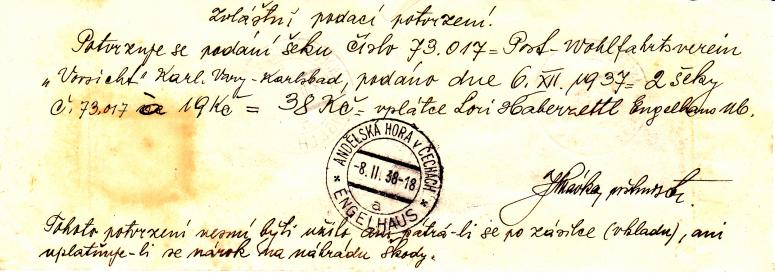 Zvláštní podací potvrzení.
Potvrzuje se podání šeku číslo 73.017 = Post-Wohlfahrtsverein
„Vorsicht“ Karl. Vary-Karlsbad, podáno dne 6. XII. 1937 = 2 šeky
č. 73.017 à 19 Kč = 38 Kč = vplátce Lori Haberzettl Engelhaus
ANDĚLSKÁ HORA v ČECHÁCH
-8. II. 38-18
a
* ENGELHAUS *
Tohoto potvrzení nesmí býti užito, ani pátrá-li se po zásilce (vkladu), ani
uplatňuje-li se nárok na náhradu škody.